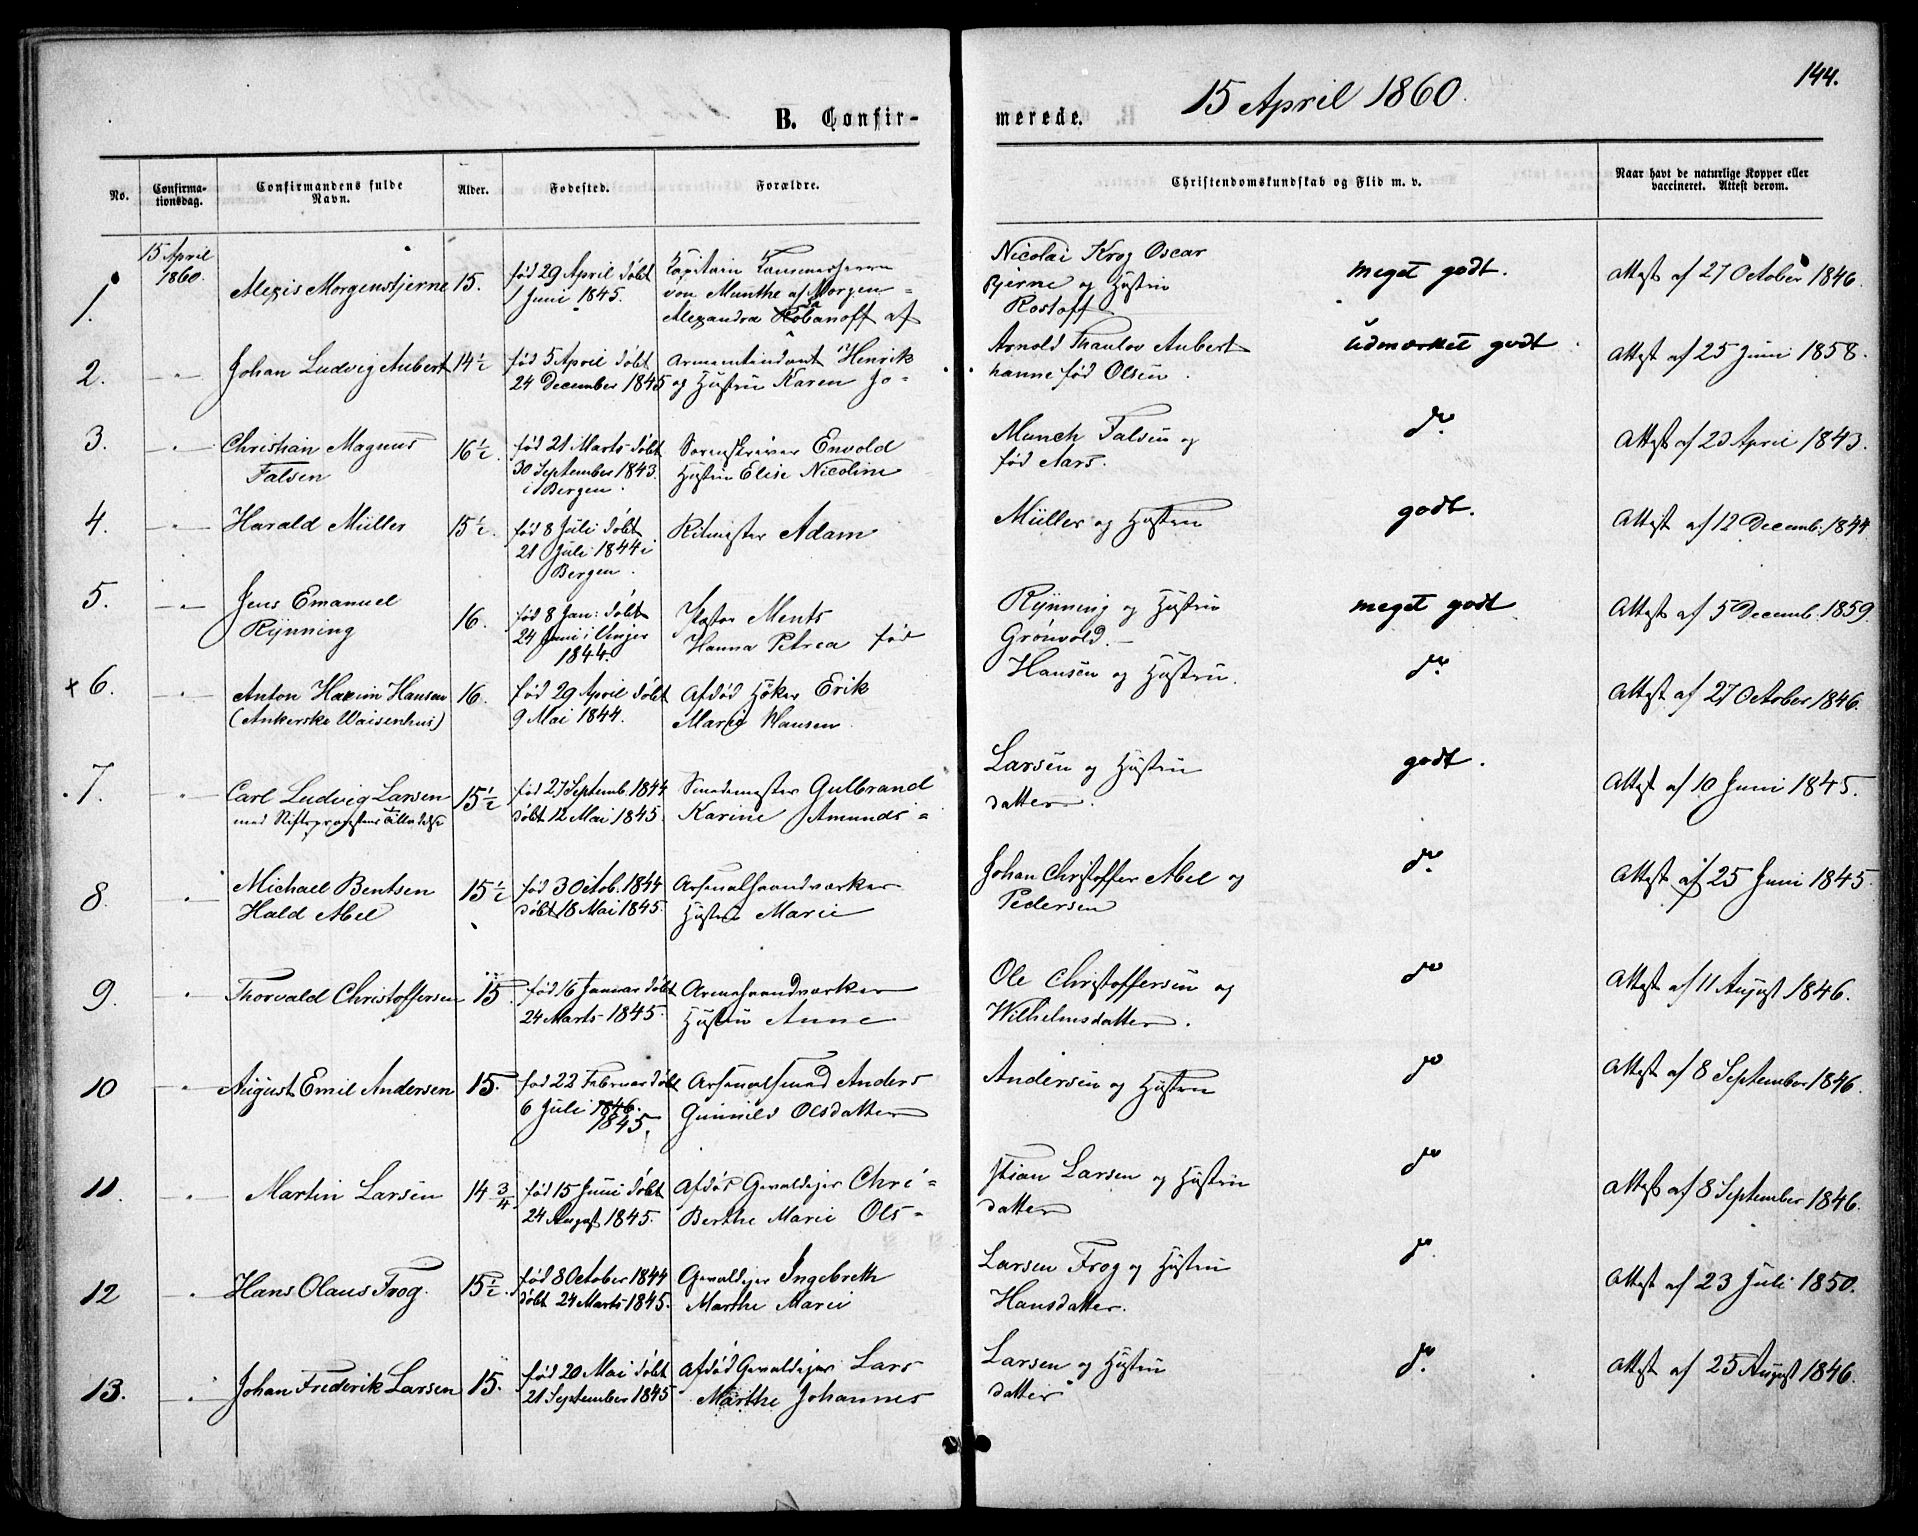 144.
B. Confir-
merede.
15 April 1860.
No.
Confirma-
tionsdag.
Confirmandens fulde
Navn.
Alder.
Fødested.
Forældre.
Christendomskundskab og Flid m. v.
Naar havt de naturlige Kopper eller
vaccineret. Attest derom.
1.
15 April
1860.
Alexis Morgenstjerne
15.
født 29 April døbt
1 Juni 1845.
Kapitain Kammerherre
von Munthe af Morgen-
Alexandra Robanoff af
Nicolai Krog Oscar
stjerne og Hustru
Rostoff
meget godt.
Attest af 27 October 1846.
2.
-"-
Johan Ludvig Aubert
14½
født 5 April døbt
24 December 1845
Henrik
og Hustru Karen Jo-
Arnold Thaulov Aubert
hanne fød Olsen.
udmærket godt.
Attest af 25 Juni 1858.
3.
-"-
Christian Magnus
Falsen
16½.
født 21 Marts døbt
30 September 1843.
i Bergen.
Sorenskriver Envold
Hustru Elise Nicoline
Munch Falsen og
fød Aars.
do.
Attest af 23 April 1843.
4.
-"-
Harald Müller
15½.
født 8 Juli døbt
21 Juli 1844 i
Bergen.
Ritmester Adam
Müller og Hustru
godt.
Attest af 12 Decemb. 1844
5.
-"-
Jens Emanuel
Rynning
16.
født 8 Jan: døbt
24 Juni i Unger
1844.
Pastor Ments
Hanna Petrea fød
Rynning og Hustru
Grønvold.-
meget godt
Attest af 5 Decemb. 1859.
+ 6.
-"-
Anton Hansen
(Ankerske Waisenhus)
16.
født 29 April døbt
9 Mai 1844.
Afdød Høker Erik
Marie Hansen
Hansen og Hustru.
do.
Attest af 27 October 1846.
7.
-"-
Carl Ludvig Larsen
med Stiftsprovstens Tilladelse
15½
født 27 Septemb. 1844
døbt 12 Mai 1845.
Smedemester Gulbrand
Karine Amunds-
Larsen og Hustru
datter.
godt.
Attest af 10 Juni 1845.
8.
-"-
Michael Bentsen
Hald Abel
15½
født 3 Octob. 1844
døbt 18 Mai 1845.
Arsenalhaandværker
Hustru Marie
Johan Christoffer Abel og
Pedersen
do.
Attest af 25 Juni 1845.
9.
-"-
Thorvald Christoffersen
15.
født 16 Januar døbt
24 Marts 1845.
Hustru Anne
Ole Christoffersen og
Wilhelmsdatter.
do
Attest af 11 August 1846.
10
-"-
August Emil Andersen
15.
født 22 Februar døbt
6 Juli 1846.
1845.
Arsenalsmed Anders
Gunnild Olsdatter
Andersen og Hustru
do
Attest af 8 September 1846.
11.
-"-
Martin Larsen
14 ¾
født 15 Juni døbt
24 August 1845.
Afdød Gevaldiger Chri-
Berthe Marie Ols-
stian Larsen og Hustru
datter
do
Attest af 8 September 1846.
12
-"-
Hans Olaus Frog.
15½.
født 8 October 1844
døbt 24 Marts 1845.
Gevaldiger Ingebreth
Marthe Marie
Larsen Frog og Hustru
Hansdatter.
do.
Attest af 23 Juli 1850.
13.
-"-
Johan Frederik Larsen
15.
født 20 Mai døbt
21 September 1845
Afdød Gevaldiger Lars
Marthe Johannes
Larsen og Hustru
datter
do.
Attest af 25 August 1846.